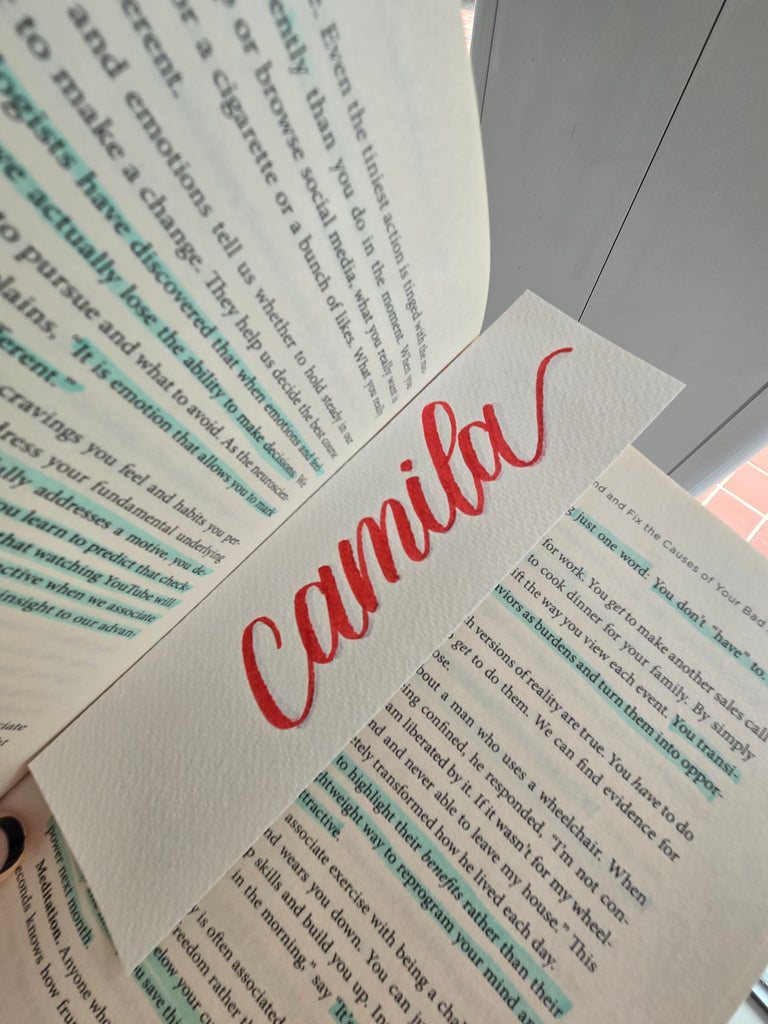 . Even the tiniest action is tinged with the
ently than you do in the moment. When you
or browse social media, what you really want is
or a cigarette or a bunch of likes. What you really
erent.
and emotions tell us whether to hold steady in our
to make a change. They help us decide the best course
ogists have discovered that when emotions and
actually lose the ability to make decisions. We
to pursue and what to avoid. As the neuroscien-
plains, "It is emotion that allows you to mark
ferent."
cravings you feel and habits you per-
dress your fundamental underlying
ally addresses a motive, you de-
ou learn to predict that check-
that watching YouTube will
active when we associate
insight to our advan-
camila
nd and Fix the Causes of Your Bad
g just one word: You don't "have" to.
for work. You get to make another sales call
to cook dinner for your family. By simply
ift the way you view each event. You transi-
aviors as burdens and turn them into oppor-
h versions of reality are true. You have to do
get to do them. We can find evidence for
ose.
bout a man who uses a wheelchair. When
ing confined, he responded, "I'm not con-
am liberated by it. If it wasn't for my wheel-
nd and never able to leave my house." This
etely transformed how he lived each day.
to highlight their benefits rather than their
htweight way to reprogram your mind
ttractive.
associate exercise with being a
nd wears you down. You can
p skills and build you up.
in the morning," say "It's
y is often associated
reedom rather
low your
u save this
power next month.
Meditation. Anyone who
econds knows how